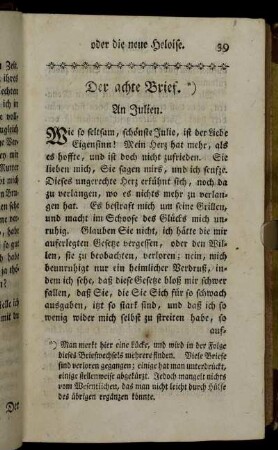 oder die neue Heloise. 39
Der achte Brief. *)
An Julien.
Wie so seltsam, schönste Julie, ist der Liebe
Eigensinn! Mein Herz hat mehr, als
es hoffte, und ist doch nicht zufrieden. Sie
lieben mich, Sie sagen mirs, und ich seufze.
Dieses ungerechte Herz erkühnt sich, noch da
zu verlangen, wo es nichts mehr zu verlan-
gen hat. Es bestraft mich um seine Grillen,
und macht im Schoose des Glücks mich un-
ruhig. Glauben Sie nicht, ich hätte die mir
auferlegten Gesetze vergessen, oder den Wil-
len, sie zu beobachten, verloren; nein, mich
beunruhigt nur ein heimlicher Verdruß, in-
dem ich sehe, daß diese Gesetze bloß mir schwer
fallen, daß Sie, die Sie Sich für so schwach
ausgaben, itzt so stark sind, und daß ich so
wenig wider mich selbst zu streiten habe, so
auf-
*) Man merkt hier eine Lücke, und wird in der Folge
dieses Briefwechsels mehrere finden. Viele Briefe
sind verloren gegangen; einige hat man unterdrückt,
einige stellenweise abgekürzt. Jedoch mangelt nichts
vom Wesentlichen, das man nicht leicht durch Hülfe
des übrigen ergänzen könnte.
Der